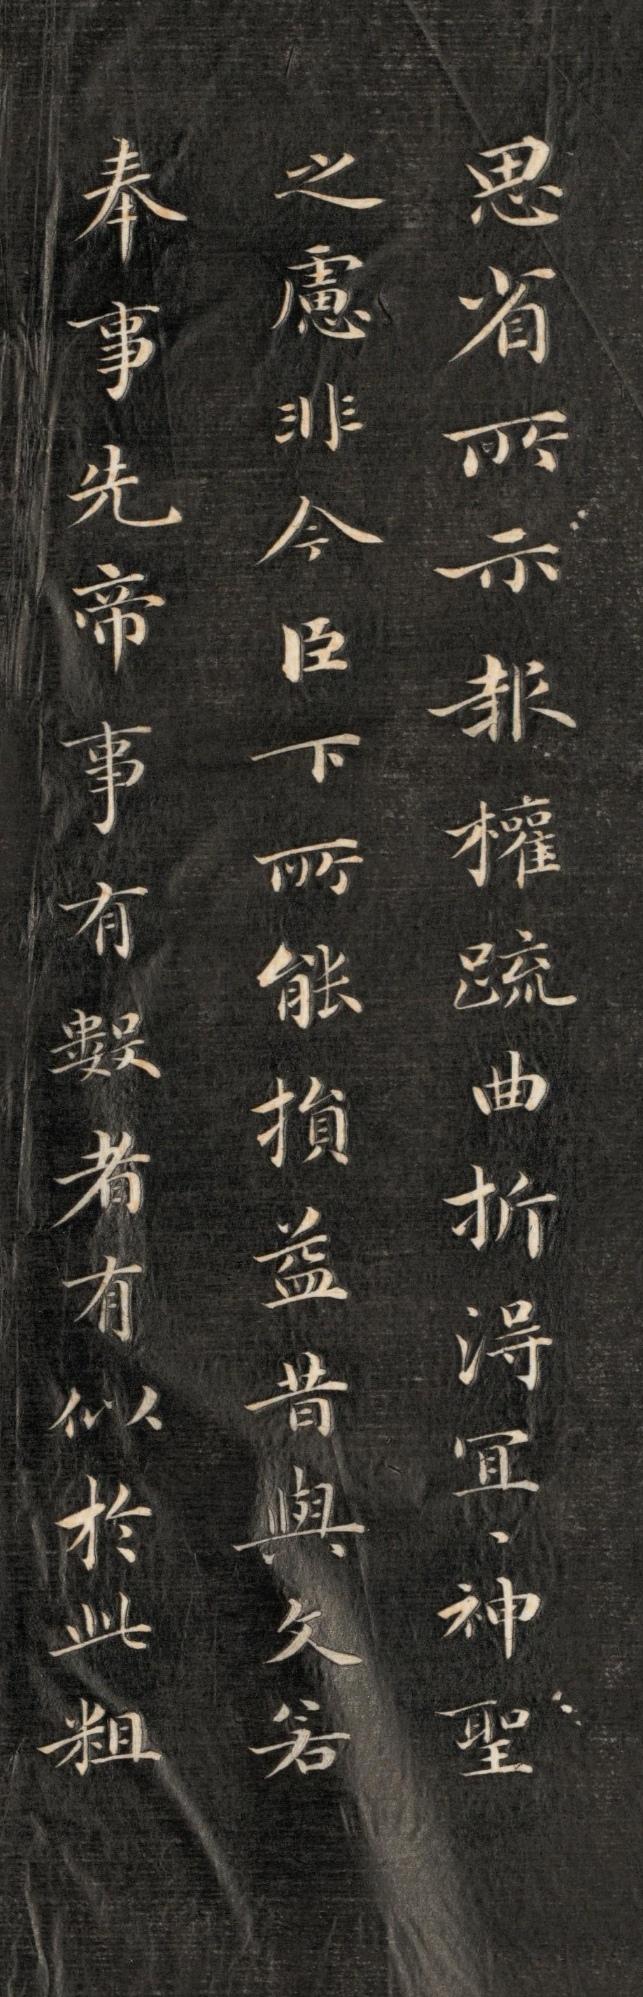 思省所示報權疏曲折得宜〻神聖
之慮非今臣下所能損益昔與文若
奉事先帝事有數者有似於此粗